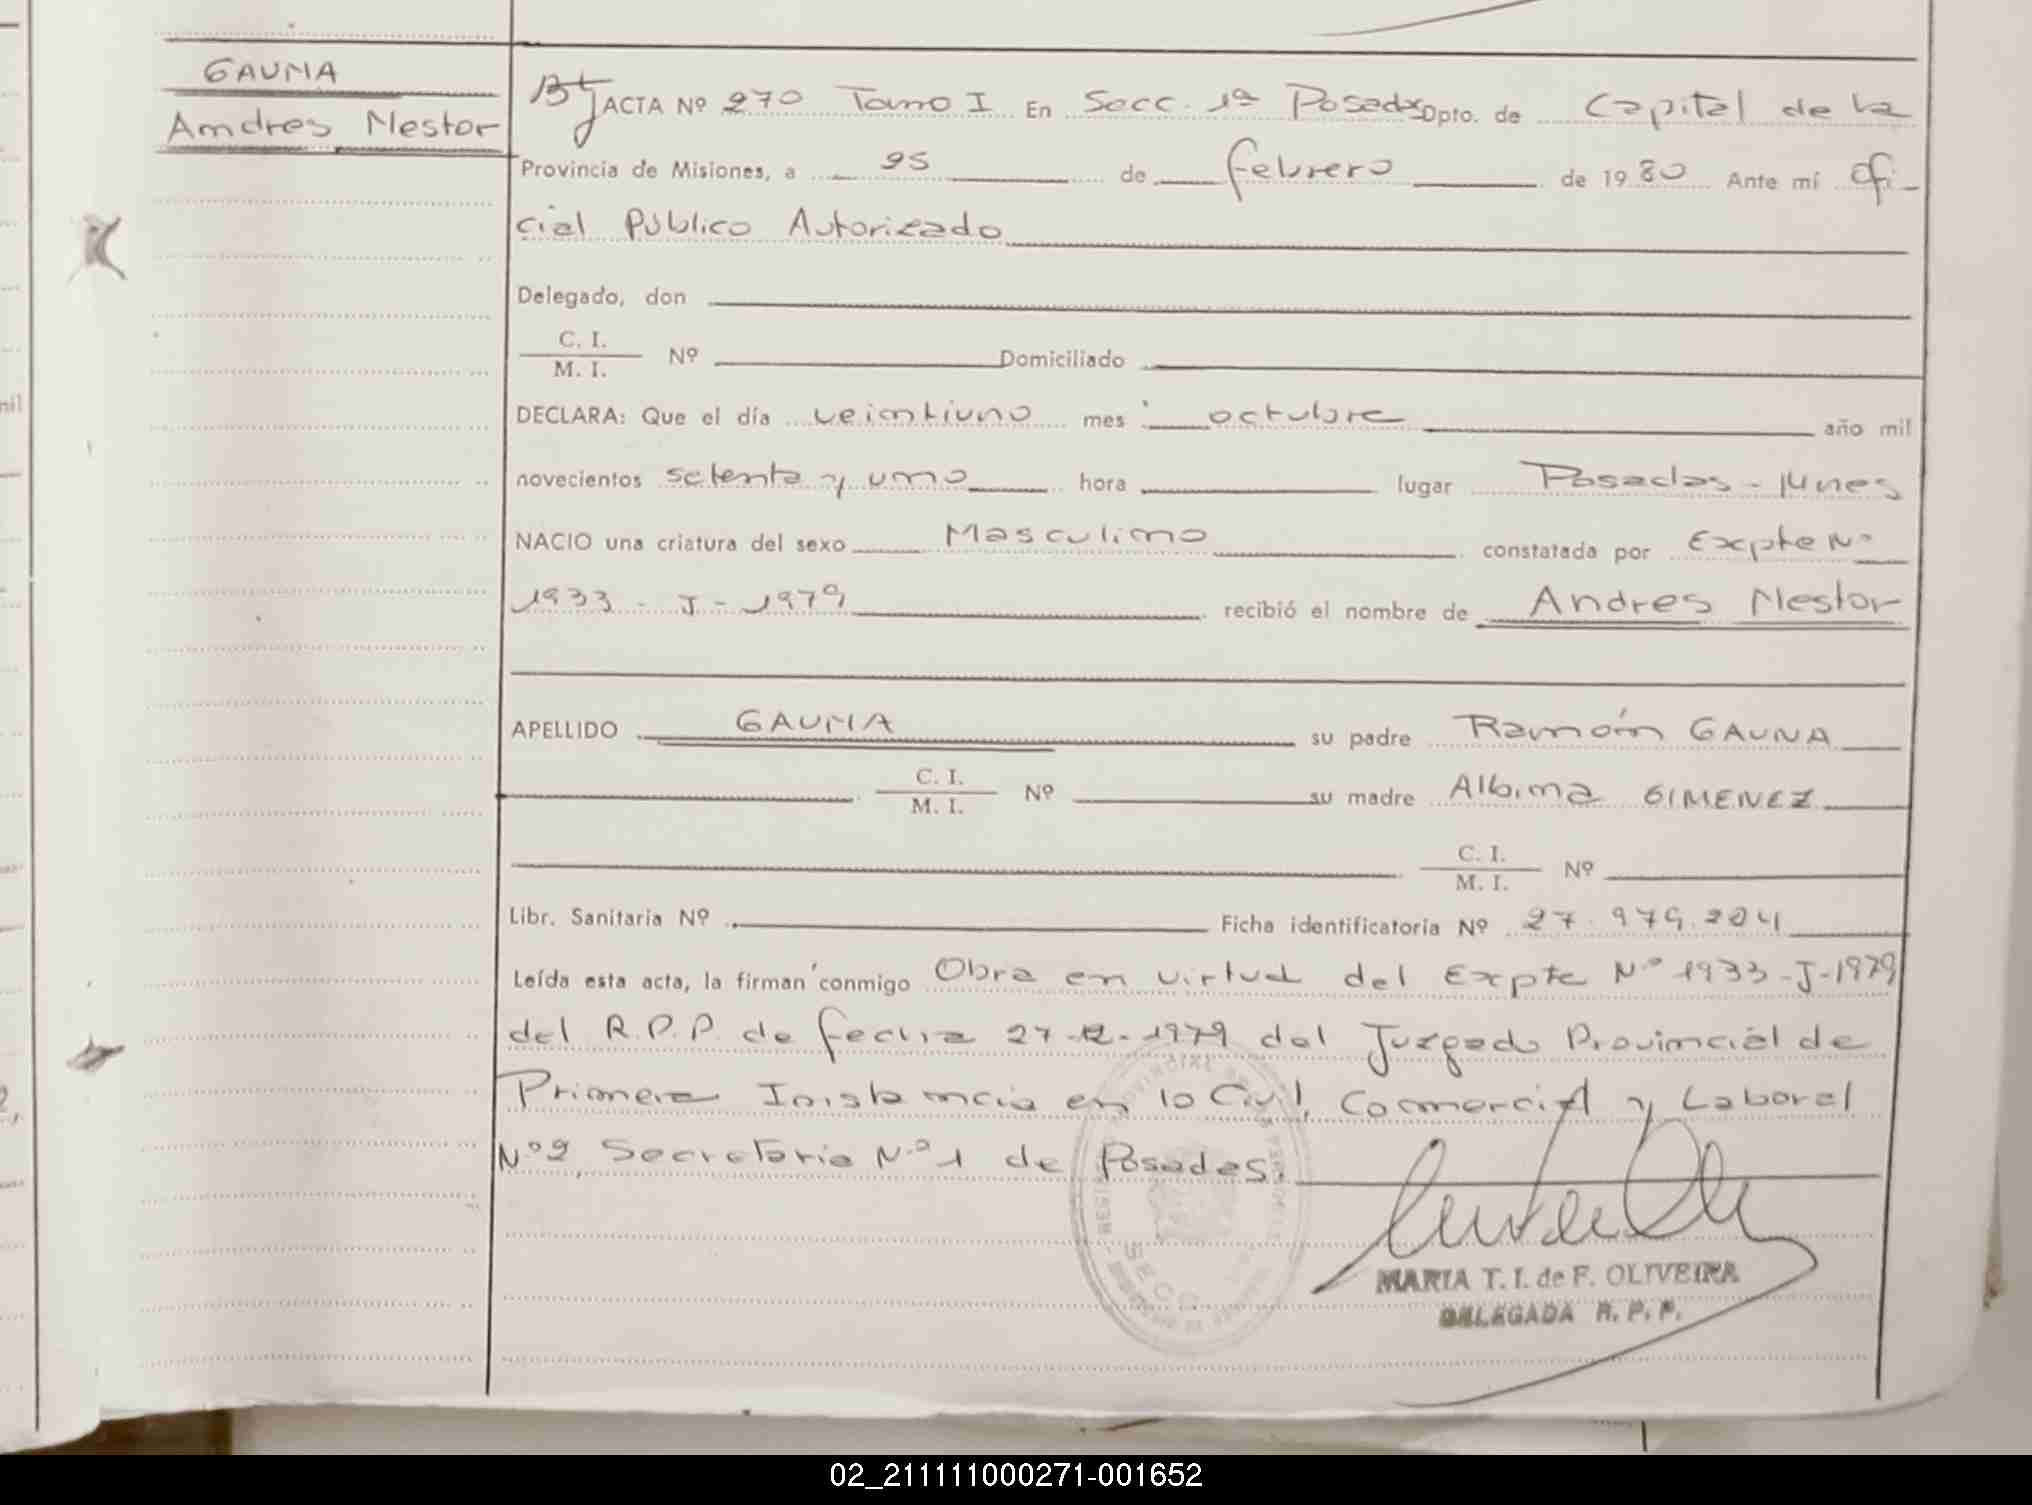 GAUNA
Andres Nestor
ACTA Nº 270 Tomo I En Secc. 1ª Posadas Dpto. de Capital de la
Provincia de Misiones, a 25 de febrero de 1980 Ante mí ofi-
cial Público Autorizado
Delegado, don
C. I.
M. I. Nº Domiciliado
DECLARA: Que el día veintiuno mes octubre año mil
novecientos setenta y uno hora lugar Posadas - Mnes
NACIO una criatura del sexo Masculino constatada por Expte Nº
1933 - J - 1979 recibió el nombre de Andres Nestor
APELLIDO GAUNA su padre Ramón GAUNA
C. I.
M. I. Nº su madre Albina GIMENEZ
C. I.
M. I. Nº
Libr. Sanitaria Nº Ficha identificatoria Nº 27.979.204
Leída esta acta, la firman conmigo Obra en virtud del Expte Nº 1933-J-1979
del R.P.P. de fecha 27-12-1979 del Juzgado Provincial de
Primera Instancia en lo Civil, Comercial y Laboral
Nº 2, Secretaria Nº 1 de Posadas.
MARIA T. I. de F. OLIVEIRA
DELEGADA R. P. P.
02_211111000271-001652